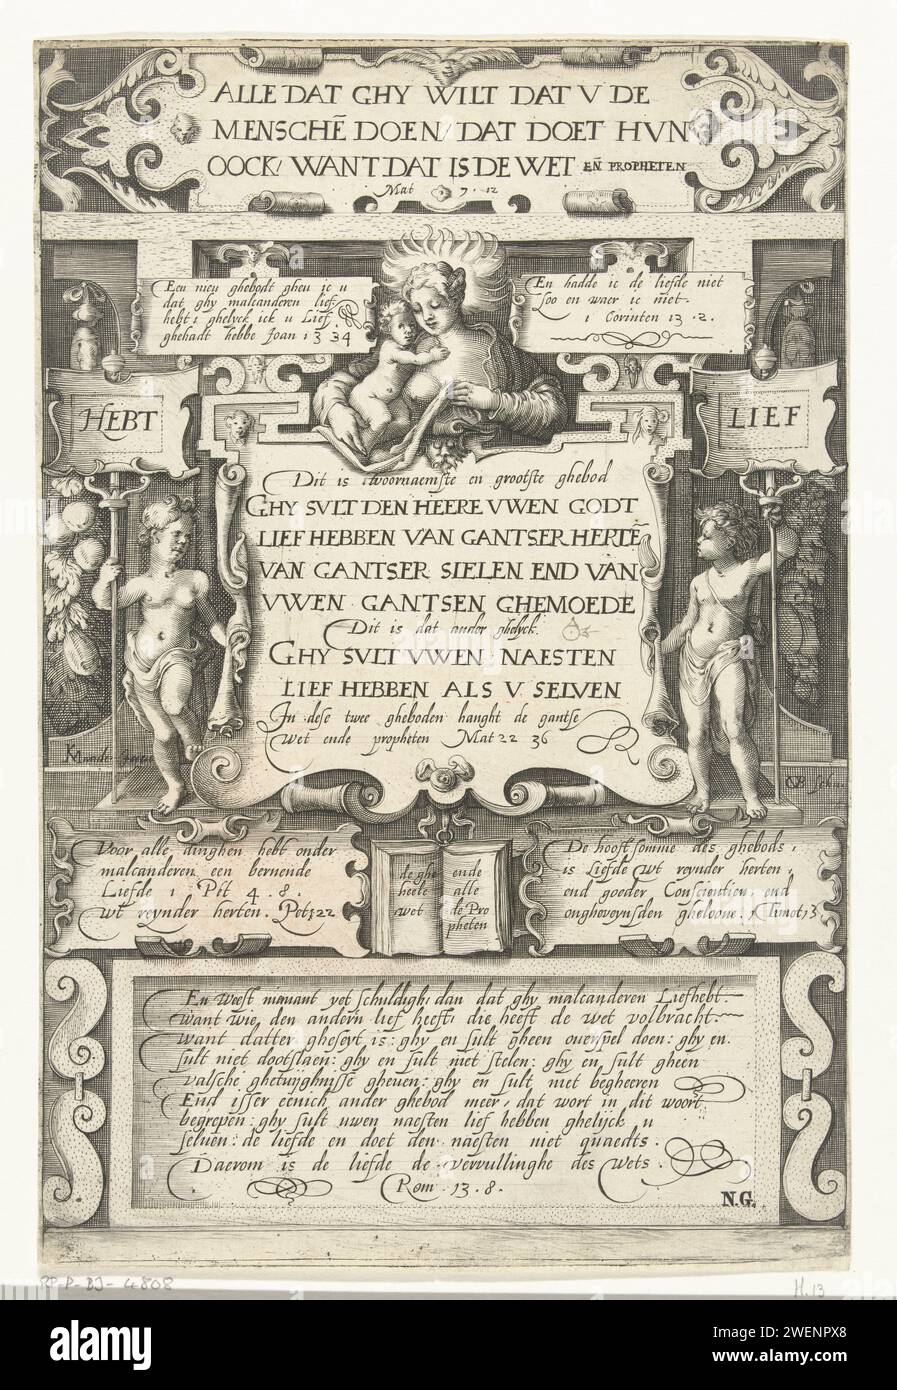 ALLE DAT GHY WILT DAT V DE
MENSCHĒ DOEN/ DAT DOET HVN
OOCK/ WANT DAT IS DE WET EÑ PROPHETEN
Mat 7.12
Een nieu ghebodt gheu ic u
dat ghy malcanderen lief
hebt: ghelyck ick u Lief
ghehadt hebbe Joan 13 34
En hadde ic de liefde niet
soo en waer ic niet.
1 Corinten 13.2.
HEBT
LIEF
Dit is tvoornaemste en grootste ghebod
GHY SVLT DEN HEERE VWEN GODT
LIEF HEBBEN VAN GANTSER HERTĒ
VAN GANTSER SIELEN END VAN
VWEN GANTSEN GHEMOEDE
Dit is dat ander ghelyck.
GHY SVLT VWEN NAESTEN
LIEF HEBBEN ALS V SELVEN
In dese twee gheboden hanght de gantse
wet ende propheten Mat 22 36
Voor alle dinghen hebt onder
malcanderen een bernende
Liefde 1 Pet 4.8.
wt reynder herten. Pet 1 22
de ghe
heele
wet
ende
alle
de Pro
pheten
De hooft somme des ghebods,
is Liefde wt reynder herten,
end goeder Conscientien, end
ongheveynsden gheloove. 1 Timot 1 3
En Weest niemant yet schuldigh: dan dat ghy malcanderen Liefhebt.
want wie den andern lief heeft: die heeft de wet volbracht.
Want datter gheseyt is: ghy en sult gheen overspel doen: ghy en
sult niet dootslaen: ghy en sult niet stelen: ghy en sult gheen
valsche ghetuyghnisse gheven: ghy en sult niet begheeren
End isser eenich ander ghebod meer, dat wort in dit woort
begrepen: ghy sult uwen naesten lief hebben ghelijck u
selven: de liefde en doet den naesten niet quaedts.
Daerom is de liefde de vervullinghe des Wets.
Rom. 13.8.
N.G.
RP-P-BJ-4808
H.13
alamy
Image ID: 2WENPX8
www.alamy.com